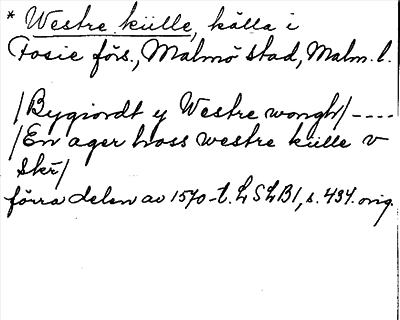 * Westre külle, källa i
Fosie förs., Malmö stad, Malm. l.
/Bygiordt y Westre wongh/----
/En ager hoss westre külle v
Skr/
förra delen av 1570-t. LSLB1, s. 434. orig.